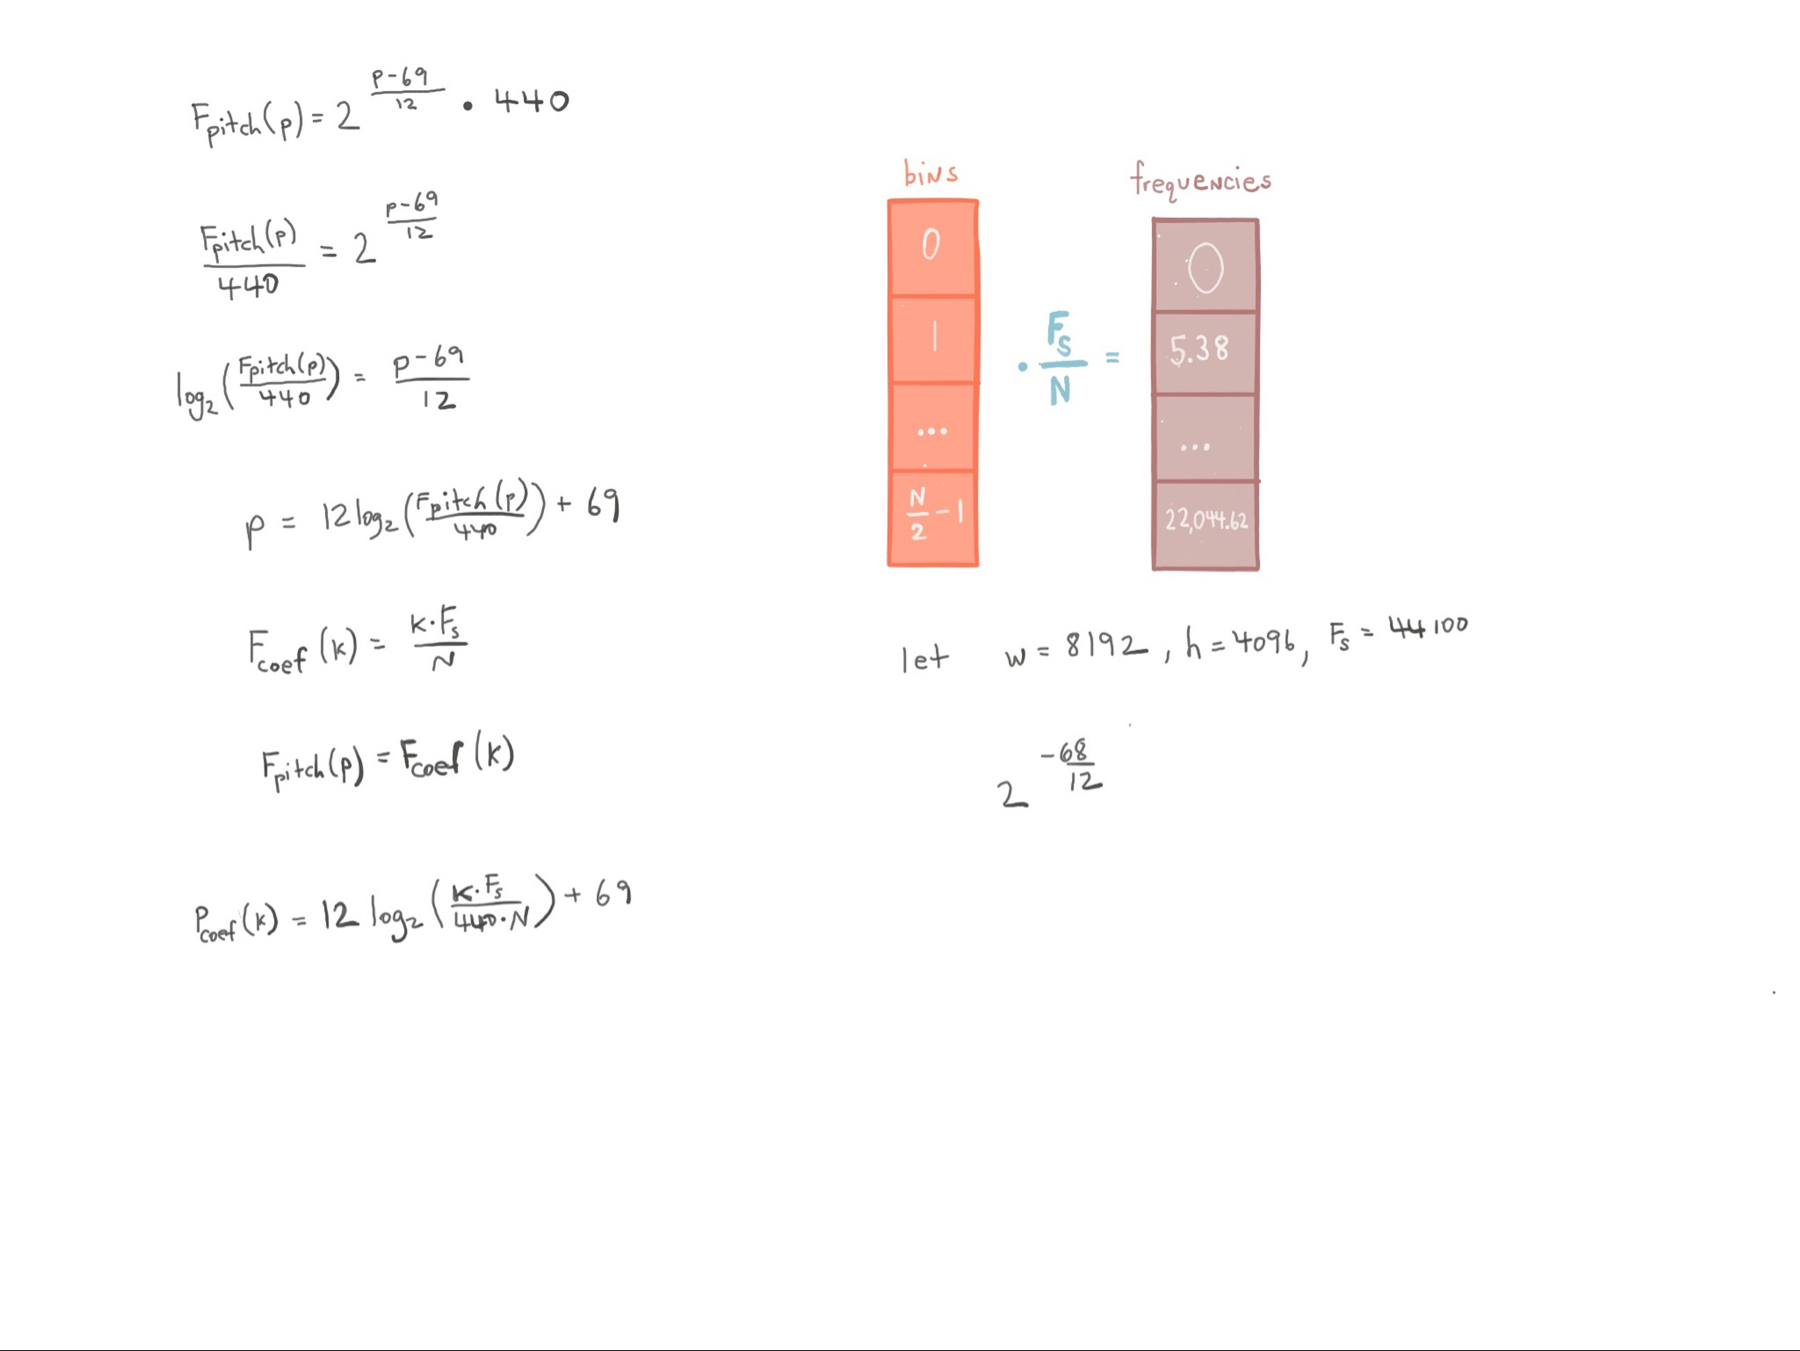 Fpitch(p) = 2^((p-69)/12) · 440
Fpitch(p)/440 = 2^((p-69)/12)
log₂(Fpitch(p)/440) = (p-69)/12
p = 12 log₂(Fpitch(p)/440) + 69
Fcoef(k) = k·Fs/N
Fpitch(p) = Fcoef(k)
Pcoef(k) = 12 log₂(k·Fs/(440·N)) + 69
bins
0
1
...
N/2 - 1
· Fs/N =
frequencies
0
5.38
...
22,044.62
let w = 8192, h = 4096, Fs = 44100
2^(-68/12)